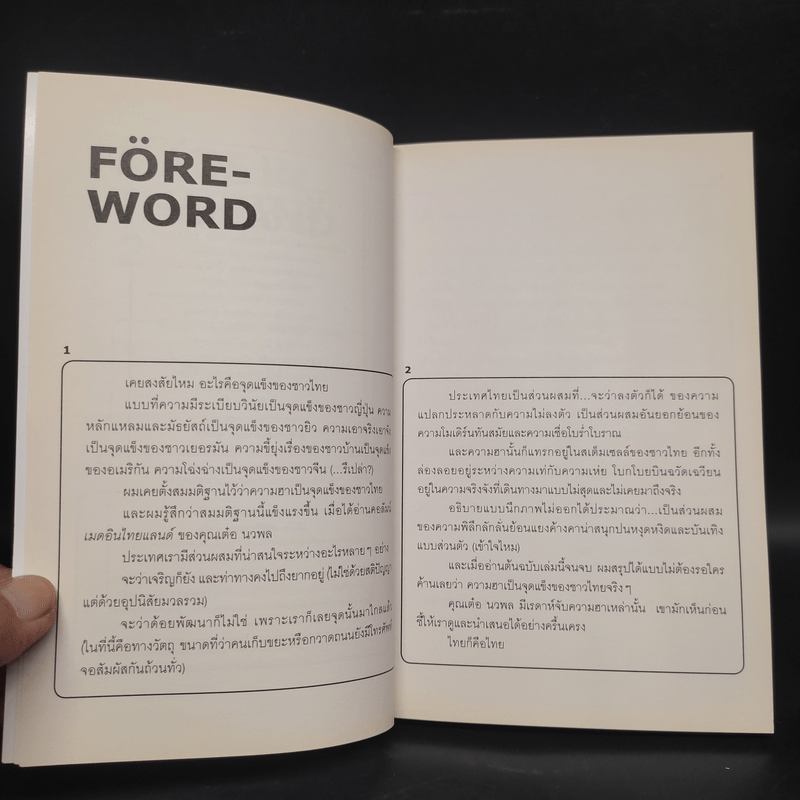 FÖRE-
WORD
1
เคยสงสัยไหม อะไรคือจุดแข็งของชาวไทย
แบบที่ความมีระเบียบวินัยเป็นจุดแข็งของชาวญี่ปุ่น ความ
หลักแหลมและมัธยัสถ์เป็นจุดแข็งของชาวยิว ความเอาจริงเอาจัง
เป็นจุดแข็งของชาวเยอรมัน ความขี้ยุ่งเรื่องของชาวบ้านเป็นจุดแข็ง
ของอเมริกัน ความโฉ่งฉ่างเป็นจุดแข็งของชาวจีน (...รึเปล่า?)
ผมเคยตั้งสมมติฐานไว้ว่าความฮาเป็นจุดแข็งของชาวไทย
และผมรู้สึกว่าสมมติฐานนี้แข็งแรงขึ้น เมื่อได้อ่านคอลัมน์
เมดอินไทยแลนด์ ของคุณเต๋อ นวพล
ประเทศเรามีส่วนผสมที่น่าสนใจระหว่างอะไรหลายๆ อย่าง
จะว่าเจริญก็ยัง และท่าทางคงไปถึงยากอยู่ (ไม่ใช่ด้วยสติปัญญา
แต่ด้วยอุปนิสัยมวลรวม)
จะว่าด้อยพัฒนาก็ไม่ใช่ เพราะเราก็เลยจุดนั้นมาไกลแล้ว
(ในที่นี้คือทางวัตถุ ขนาดที่ว่าคนเก็บขยะหรือกวาดถนนยังมีโทรศัพท์
จอสัมผัสกันถ้วนทั่ว)
2
ประเทศไทยเป็นส่วนผสมที่...จะว่าลงตัวก็ได้ ของความ
แปลกประหลาดกับความไม่ลงตัว เป็นส่วนผสมอันยอกย้อนของ
ความโมเดิร์นทันสมัยและความเชื่อโบร่ำโบราณ
และความฮานั้นก็แทรกอยู่ในสเต็มเซลล์ของชาวไทย อีกทั้ง
ล่องลอยอยู่ระหว่างความเท่กับความเห่ย โบกโบยบินฉวัดเฉวียน
อยู่ในความจริงจังที่เดินทางมาแบบไม่สุดและไม่เคยมาถึงจริง
อธิบายแบบนึกภาพไม่ออกได้ประมาณว่า...เป็นส่วนผสม
ของความพิลึกลักลั่นย้อนแย้งค้างคาน่าสนุกปนหงุดหงิดและบันเทิง
แบบส่วนตัว (เข้าใจไหม)
และเมื่ออ่านต้นฉบับเล่มนี้จนจบ ผมสรุปได้แบบไม่ต้องรอใคร
ค้านเลยว่า ความฮาเป็นจุดแข็งของชาวไทยจริงๆ
คุณเต๋อ นวพล มีเรดาห์จับความฮาเหล่านั้น เขามักเห็นก่อน
ชี้ให้เราดูและนำเสนอได้อย่างครื้นเครง
ไทยก็คือไทย